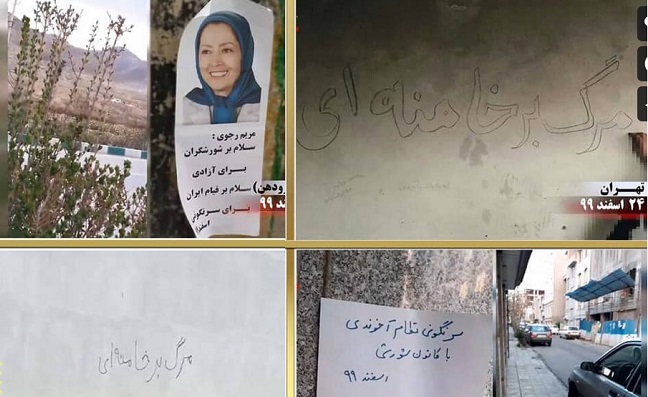 مریم رجوی :
سلام بر شورشگران
برای آزادی
سلام بر قیام ایران
برای سرنگونی
مرگ بر خامنه ای
تهران
۲۴ اسفند ۹۹
مرگ بر خامنه ای
سرنگونی نظام آخوندی
با کانون شورشی
اسفند ۹۹